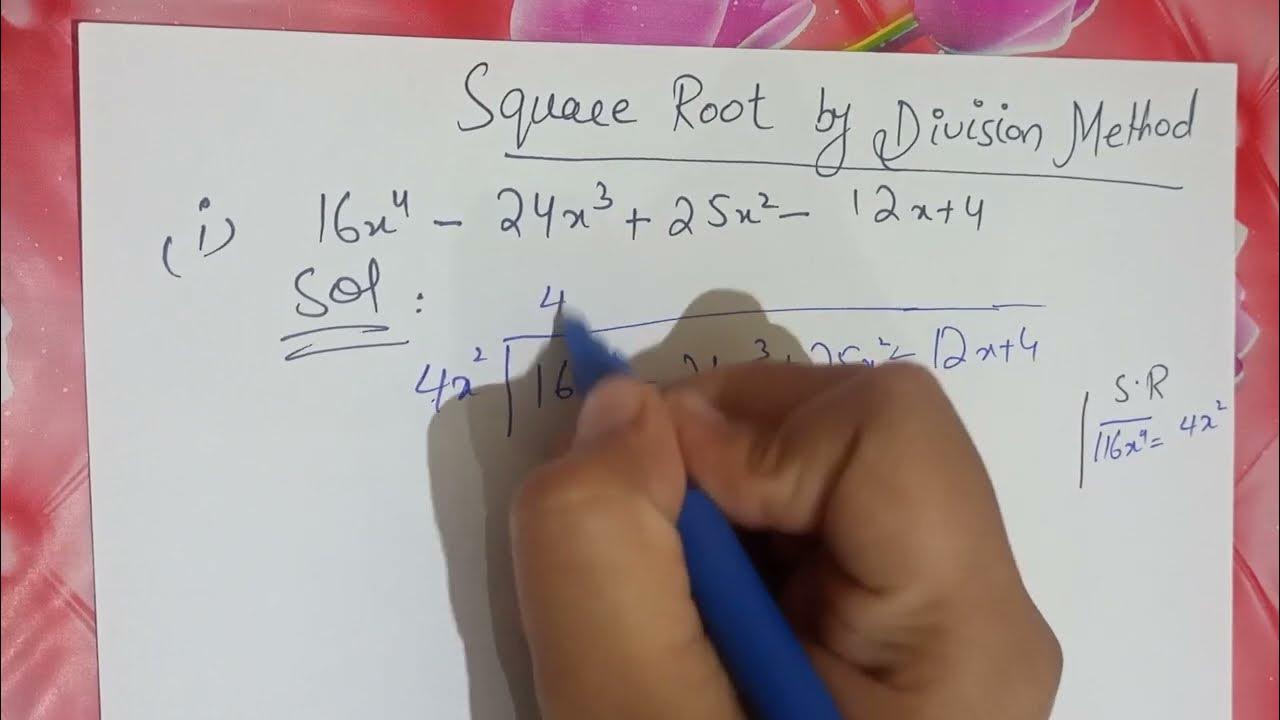 Square Root by Division Method
(i) 16x⁴ - 24x³ + 25x² - 12x+4
Sol :
4
4x² 16 25x² - 12x+4
S.R
√16x⁴ = 4x²